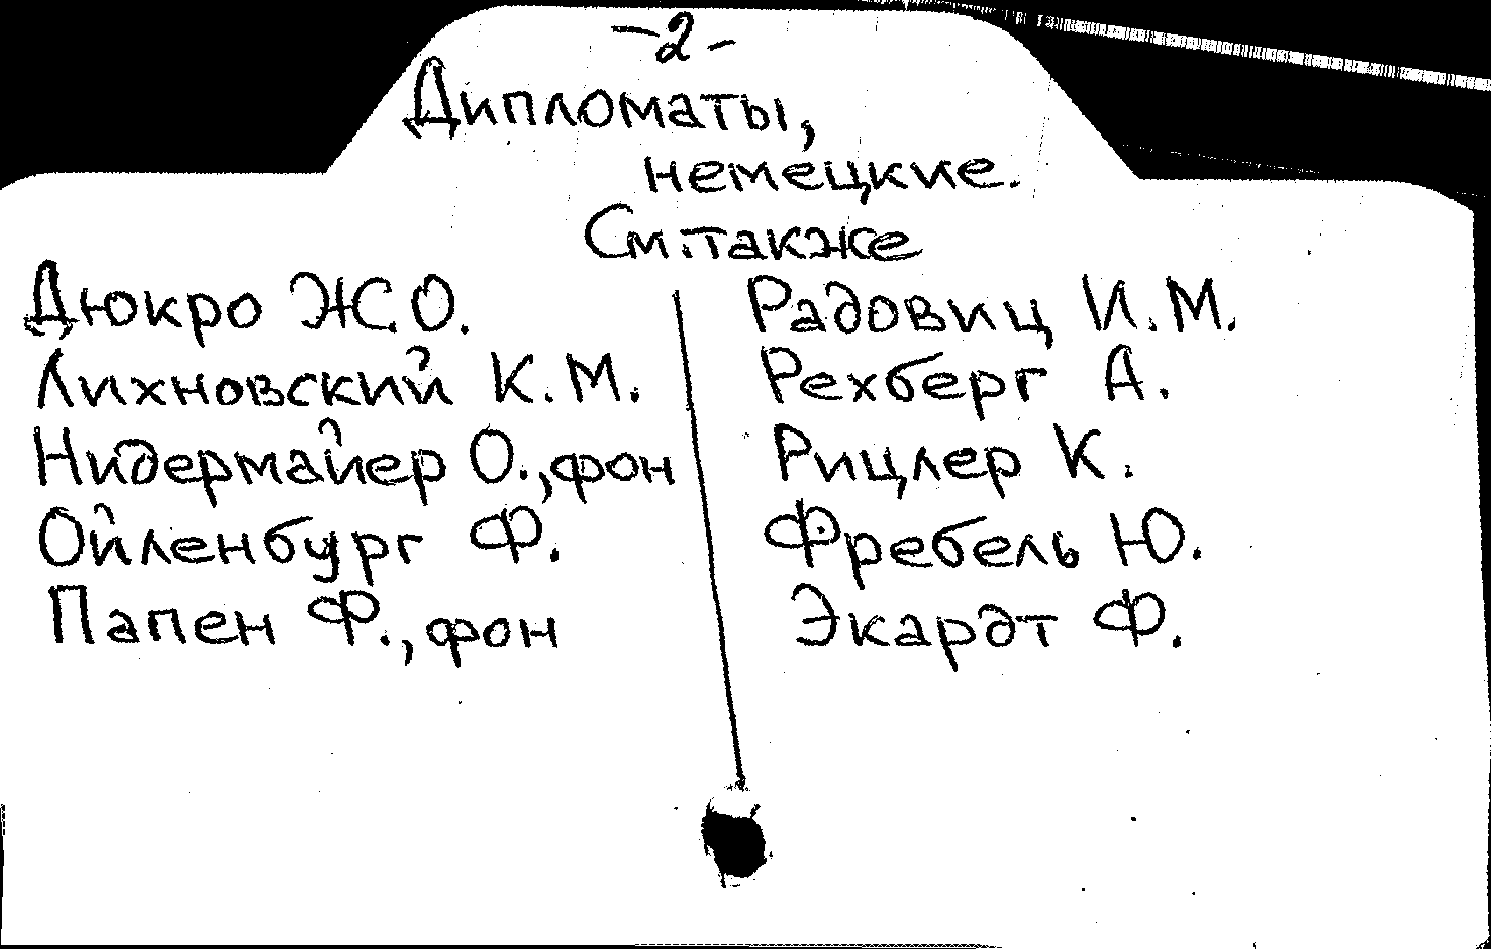 -2-
Дипломаты,
немецкие.
См. также
Дюкро Ж.О.
Лихновский К.М.
Нидермайер О., фон
Ойленбург Ф.
Папен Ф., фон
Радовиц И.М.
Рехберг А.
Рицлер К.
Фребель Ю.
Экардт Ф.